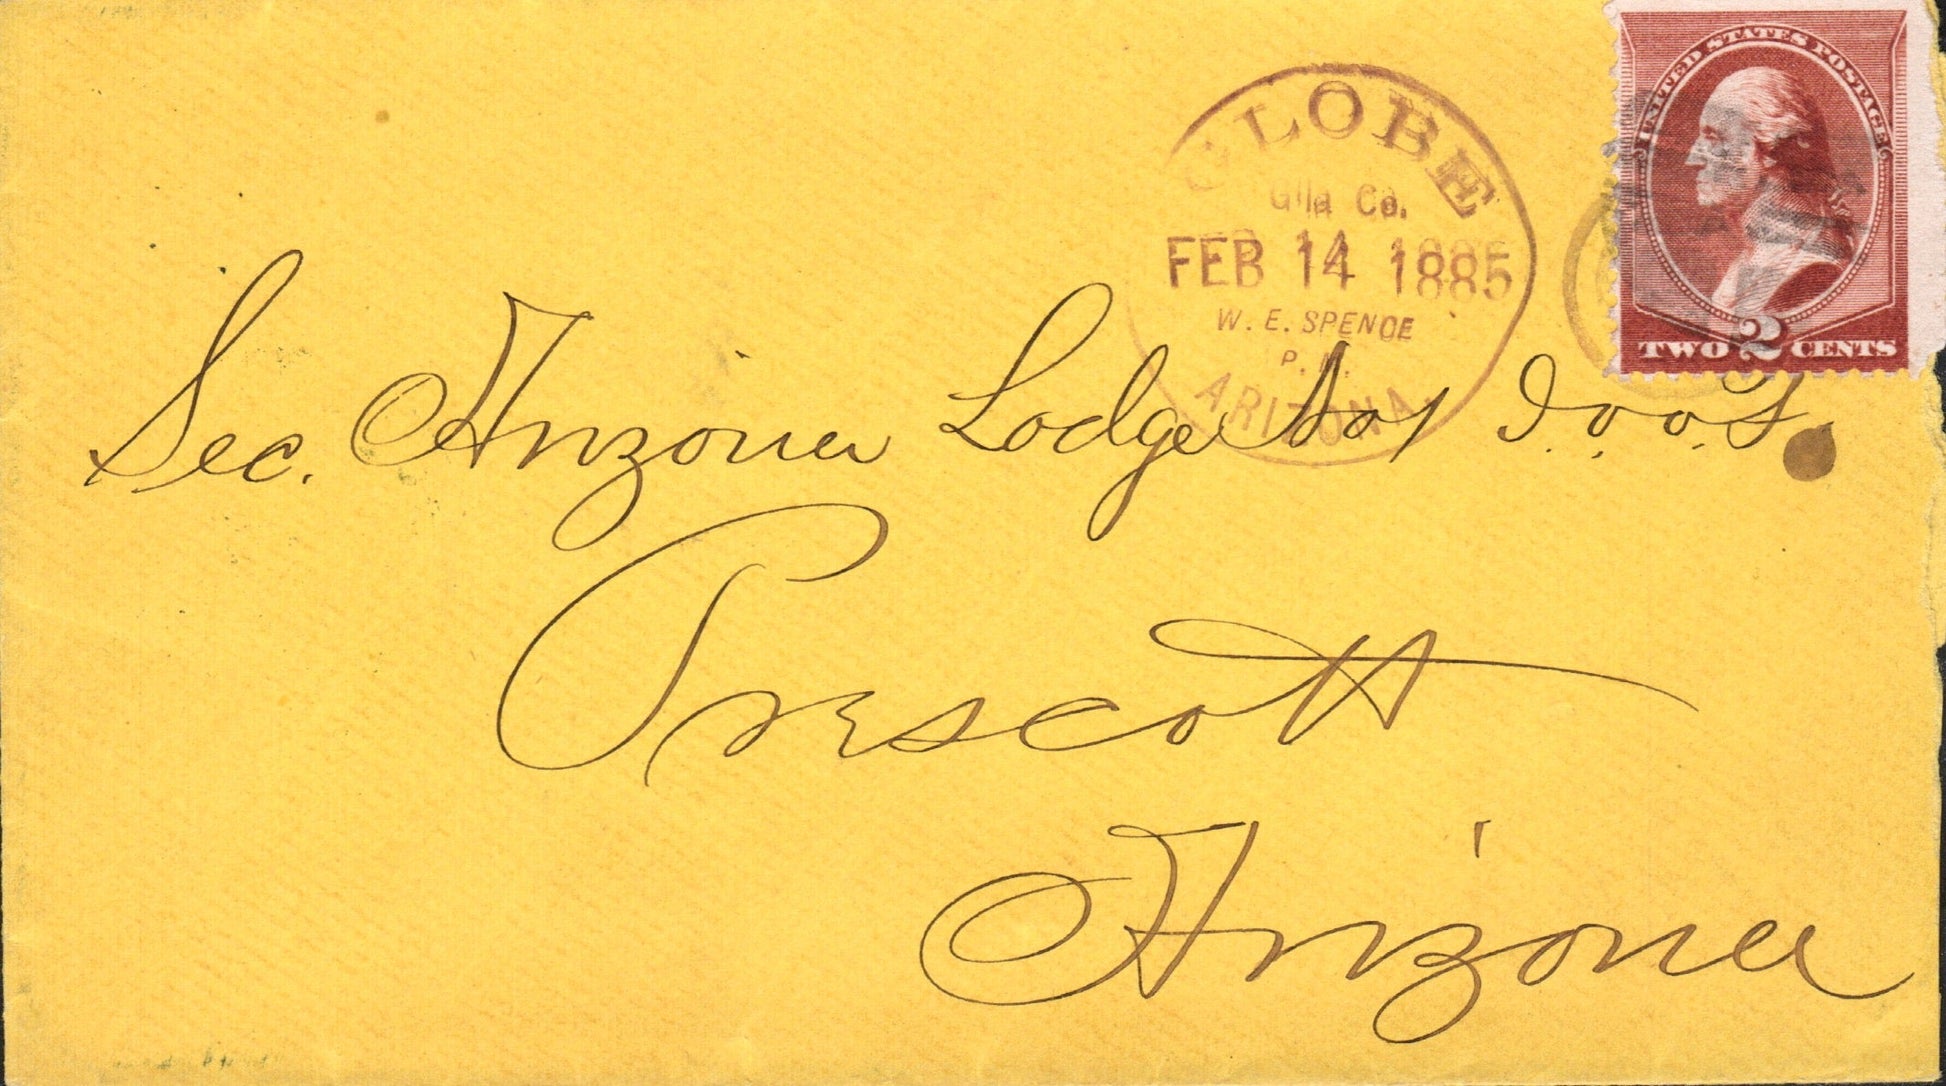 GLOBE
Gila Co.
FEB 14 1885
W. E. SPENCE
P. M.
ARIZONA.
UNITED STATES POSTAGE
2
TWO CENTS
Sec. Arizona Lodge No 1 I.O.O.F.
Prescott
Arizona